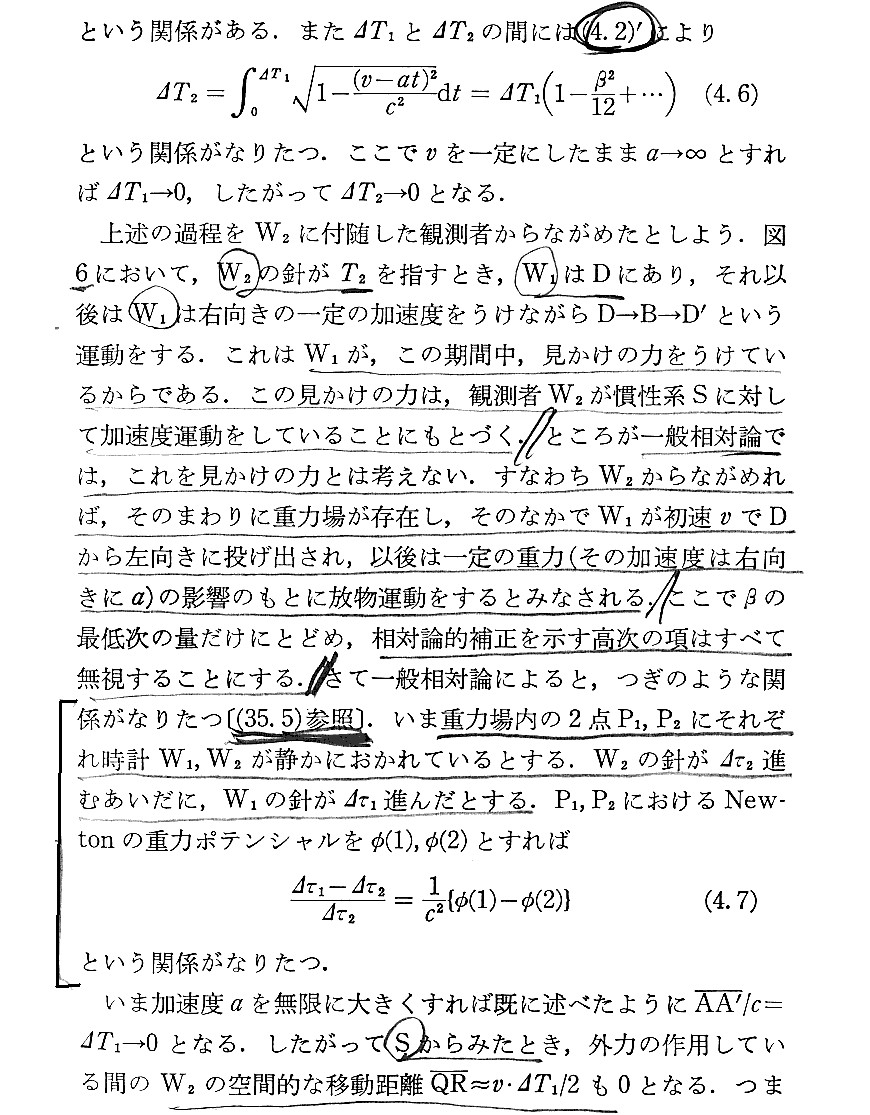 という関係がある．また ΔT₁ と ΔT₂ の間には(4.2)′により
ΔT₂ = ∫₀^{ΔT₁} √(1−(v−at)²/c²) dt = ΔT₁(1−β²/12+⋯)　(4.6)
という関係がなりたつ．ここで v を一定にしたまま a→∞ とすれ
ば ΔT₁→0，したがって ΔT₂→0 となる．
上述の過程を W₂ に付随した観測者からながめたとしよう．図
6において，W₂の針が T₂ を指すとき，W₁は D にあり，それ以
後はW₁は右向きの一定の加速度をうけながら D→B→D′ という
運動をする．これは W₁が，この期間中，見かけの力をうけてい
るからである．この見かけの力は，観測者 W₂ が慣性系 S に対し
て加速度運動をしていることにもとづく．ところが一般相対論で
は，これを見かけの力とは考えない．すなわち W₂ からながめれ
ば，そのまわりに重力場が存在し，そのなかで W₁ が初速 v で D
から左向きに投げ出され，以後は一定の重力(その加速度は右向
きに a)の影響のもとに放物運動をするとみなされる．ここで β の
最低次の量だけにとどめ，相対論的補正を示す高次の項はすべて
無視することにする．さて一般相対論によると，つぎのような関
係がなりたつ〔(35.5)参照〕．いま重力場内の 2 点 P₁, P₂ にそれぞ
れ時計 W₁, W₂ が静かにおかれているとする．W₂ の針が Δτ₂ 進
むあいだに，W₁ の針が Δτ₁ 進んだとする．P₁, P₂ における New-
ton の重力ポテンシャルを φ(1), φ(2) とすれば
(Δτ₁−Δτ₂)/Δτ₂ = 1/c² {φ(1)−φ(2)}　(4.7)
という関係がなりたつ．
いま加速度 a を無限に大きくすれば既に述べたように A̅A̅′/c=
ΔT₁→0 となる．したがって S からみたとき，外力の作用してい
る間の W₂ の空間的な移動距離 Q̅R̅≈v·ΔT₁/2 も 0 となる．つま